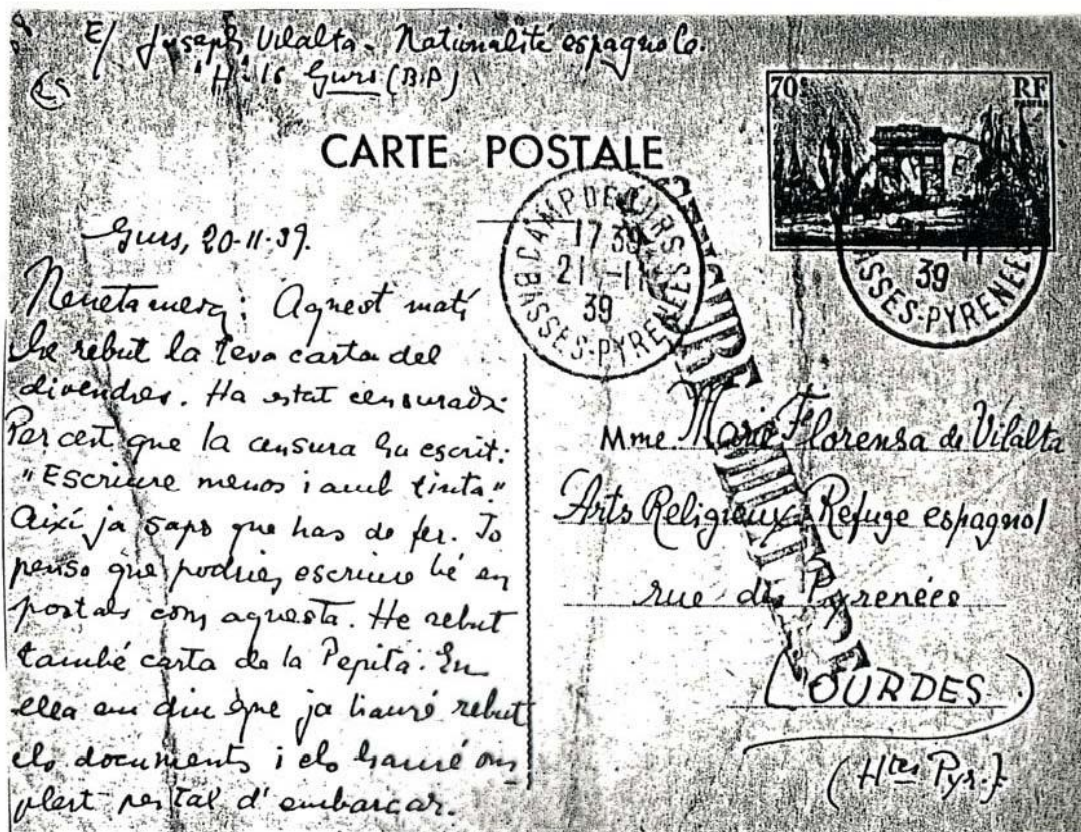 E/ Joseph Vilalta - Nationalité espagnole.
H: 16 Gurs (BP)
25
70c RF
CARTE POSTALE
CAMP DE GURS
17 39
21 -11
39
BASSES-PYRENEES
39
BASSES-PYRENEES
Gurs, 20-11-39.
Neneta meva: Aquest matí
he rebut la teva carta del
divendres. Ha estat censurada.
Per cert que la censura ha escrit:
"Escriure menos i amb tinta."
Així ja saps que has de fer. Jo
penso que podries escriure bé en
postals com aquesta. He rebut
també carta de la Pepita. En
ella em diu que ja hauré rebut
els documents i els hauré om
plert per tal d'embarcar.
Mme Marie Florensa de Vilalta
Arts Religieux. Refuge espagnol
rue des Pyrenées
LOURDES
(Htes Pyr.)
MILITAIRE